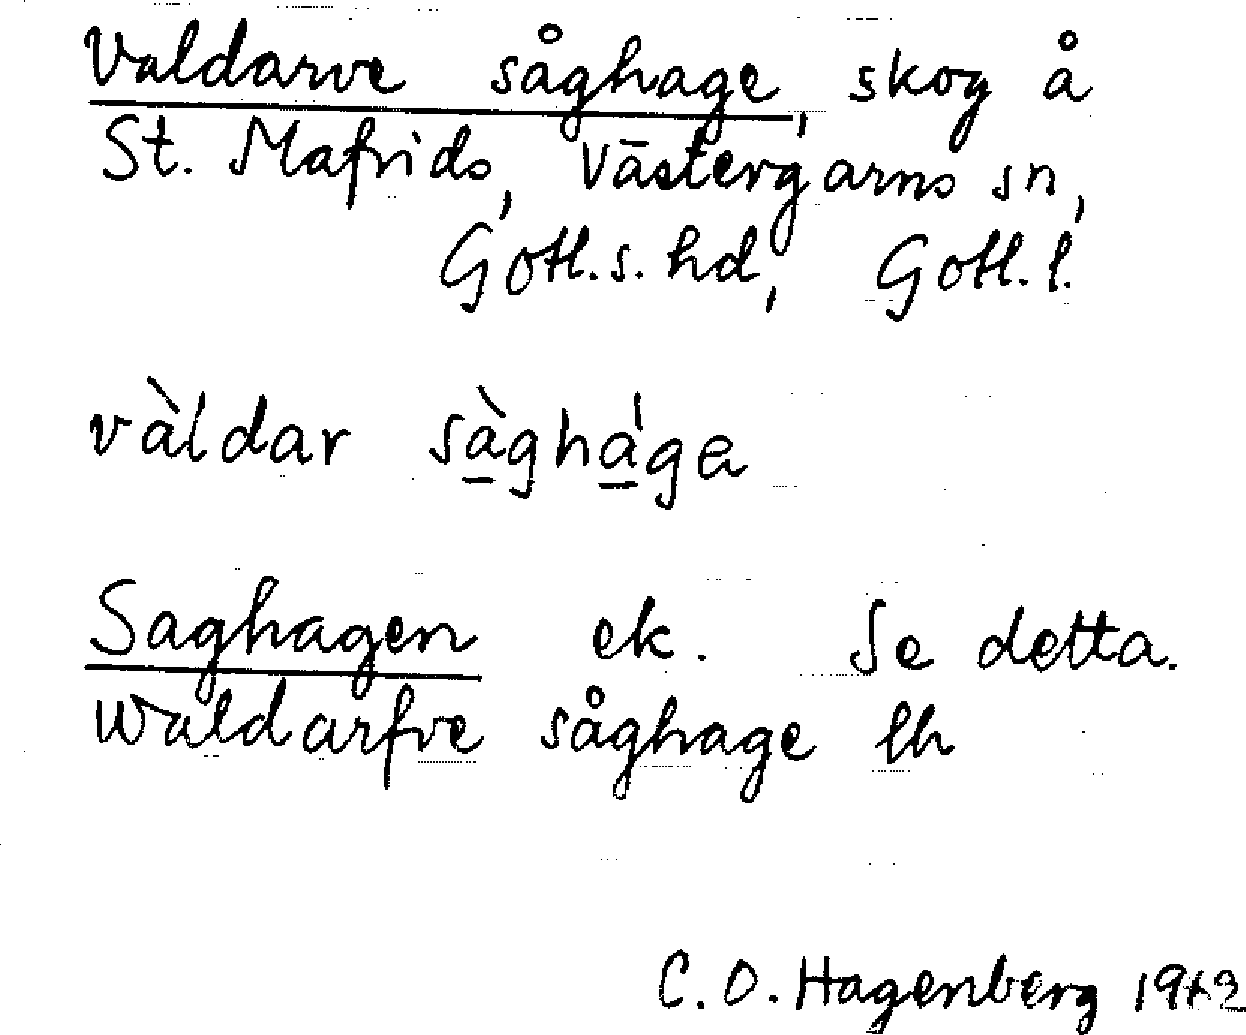 Valdarve såghage, skog å
St. Mafrids, Västergarns sn,
Gotl. s. hd, Gotl. l.
vàldar sàghá̱ge
Saghagen ek. Se detta.
Waldarfve såghage lh
C. O. Hagenberg 1942